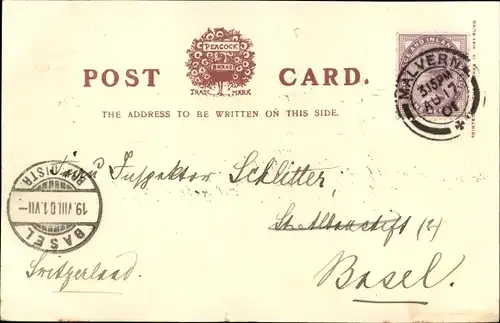 PEACOCK
BRAND
TRADE MARK
POST CARD.
THE ADDRESS TO BE WRITTEN ON THIS SIDE.
MALVERN
3.15PM
AU 17
01
Inspektor Schlitter,
St. Albanstift (2)
Basel.
Switzerland.
BASEL
19.VIII.01.VII–
BR. DISTR.